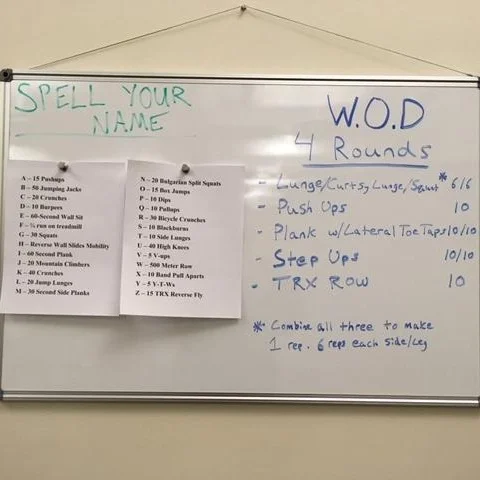 SPELL YOUR
NAME
A – 15 Pushups
B – 50 Jumping Jacks
C – 20 Crunches
D – 10 Burpees
E – 60-Second Wall Sit
F – ¼ run on treadmill
G – 30 Squats
H – Reverse Wall Slides Mobility
I – 60 Second Plank
J – 20 Mountain Climbers
K – 40 Crunches
L – 20 Jump Lunges
M – 30 Second Side Planks
N – 20 Bulgarian Split Squats
O – 15 Box Jumps
P – 10 Dips
Q – 10 Pullups
R – 30 Bicycle Crunches
S – 10 Blackburns
T – 10 Side Lunges
U – 40 High Knees
V – 5 V-ups
W – 500 Meter Row
X – 10 Band Pull Aparts
Y – 5 Y-T-Ws
Z – 15 TRX Reverse Fly
W.O.D
4 Rounds
- Lunge/Curtsy Lunge/Squat * 6/6
- Push Ups 10
- Plank w/Lateral Toe Taps 10/10
- Step Ups 10/10
- TRX Row 10
* Combine all three to make
1 rep. 6 reps each side/leg